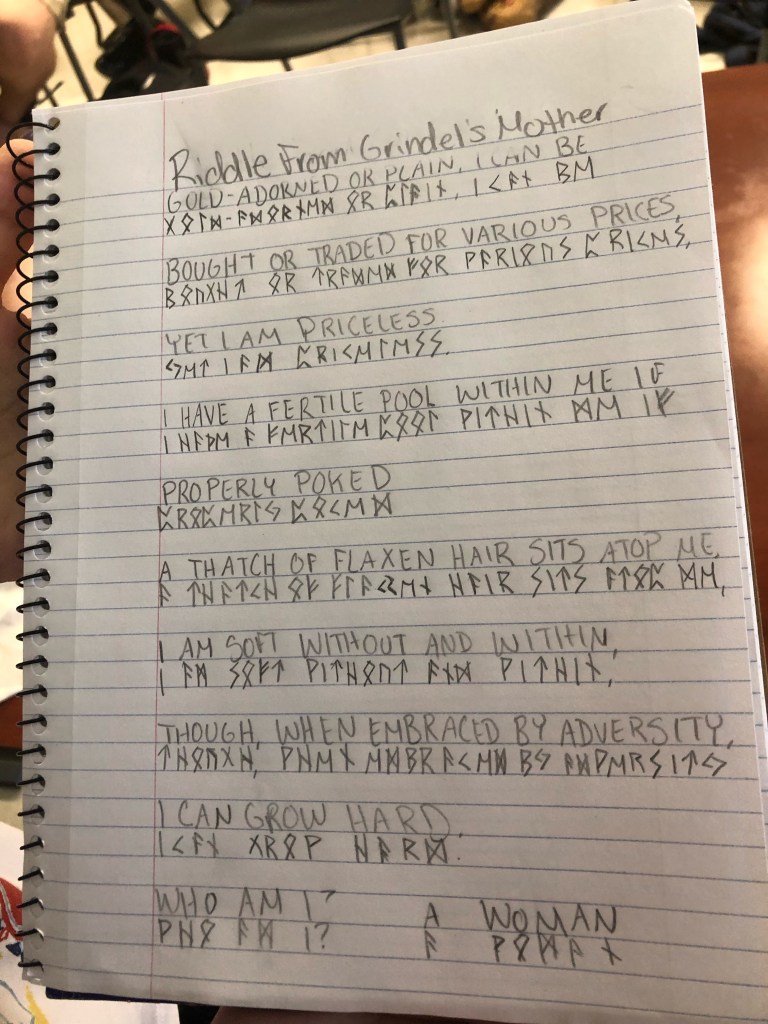 Riddle From Grindel's Mother
GOLD-ADORNED OR PLAIN, I CAN BE
ᚷᛟᛚᛞ-ᚨᛞᛟᚱᚾᛖᛞ ᛟᚱ ᛈᛚᚨᛁᚾ, ᛁ ᚲᚨᚾ ᛒᛖ
BOUGHT OR TRADED FOR VARIOUS PRICES,
ᛒᛟᚢᚷᚺᛏ ᛟᚱ ᛏᚱᚨᛞᛖᛞ ᚠᛟᚱ ᚹᚨᚱᛁᛟᚢᛊ ᛈᚱᛁᚲᛖᛊ,
YET I AM PRICELESS.
ᛃᛖᛏ ᛁ ᚨᛗ ᛈᚱᛁᚲᛖᛚᛖᛊᛊ.
I HAVE A FERTILE POOL WITHIN ME IF
ᛁ ᚺᚨᚹᛖ ᚨ ᚠᛖᚱᛏᛁᛚᛖ ᛈᛟᛟᛚ ᚹᛁᛏᚺᛁᚾ ᛗᛖ ᛁᚠ
PROPERLY POKED
ᛈᚱᛟᛈᛖᚱᛚᛃ ᛈᛟᚲᛖᛞ
A THATCH OF FLAXEN HAIR SITS ATOP ME,
ᚨ ᛏᚺᚨᛏᚲᚺ ᛟᚠ ᚠᛚᚨᚲᛊᛖᚾ ᚺᚨᛁᚱ ᛊᛁᛏᛊ ᚨᛏᛟᛈ ᛗᛖ,
I AM SOFT WITHOUT AND WITHIN,
ᛁ ᚨᛗ ᛊᛟᚠᛏ ᚹᛁᛏᚺᛟᚢᛏ ᚨᚾᛞ ᚹᛁᛏᚺᛁᚾ,
THOUGH, WHEN EMBRACED BY ADVERSITY,
ᛏᚺᛟᚢᚷᚺ, ᚹᚺᛖᚾ ᛖᛗᛒᚱᚨᚲᛖᛞ ᛒᛃ ᚨᛞᚹᛖᚱᛊᛁᛏᛃ
I CAN GROW HARD.
ᛁ ᚲᚨᚾ ᚷᚱᛟᚹ ᚺᚨᚱᛞ.
WHO AM I? A WOMAN
ᚹᚺᛟ ᚨᛗ ᛁ? ᚨ ᚹᛟᛗᚨᚾ